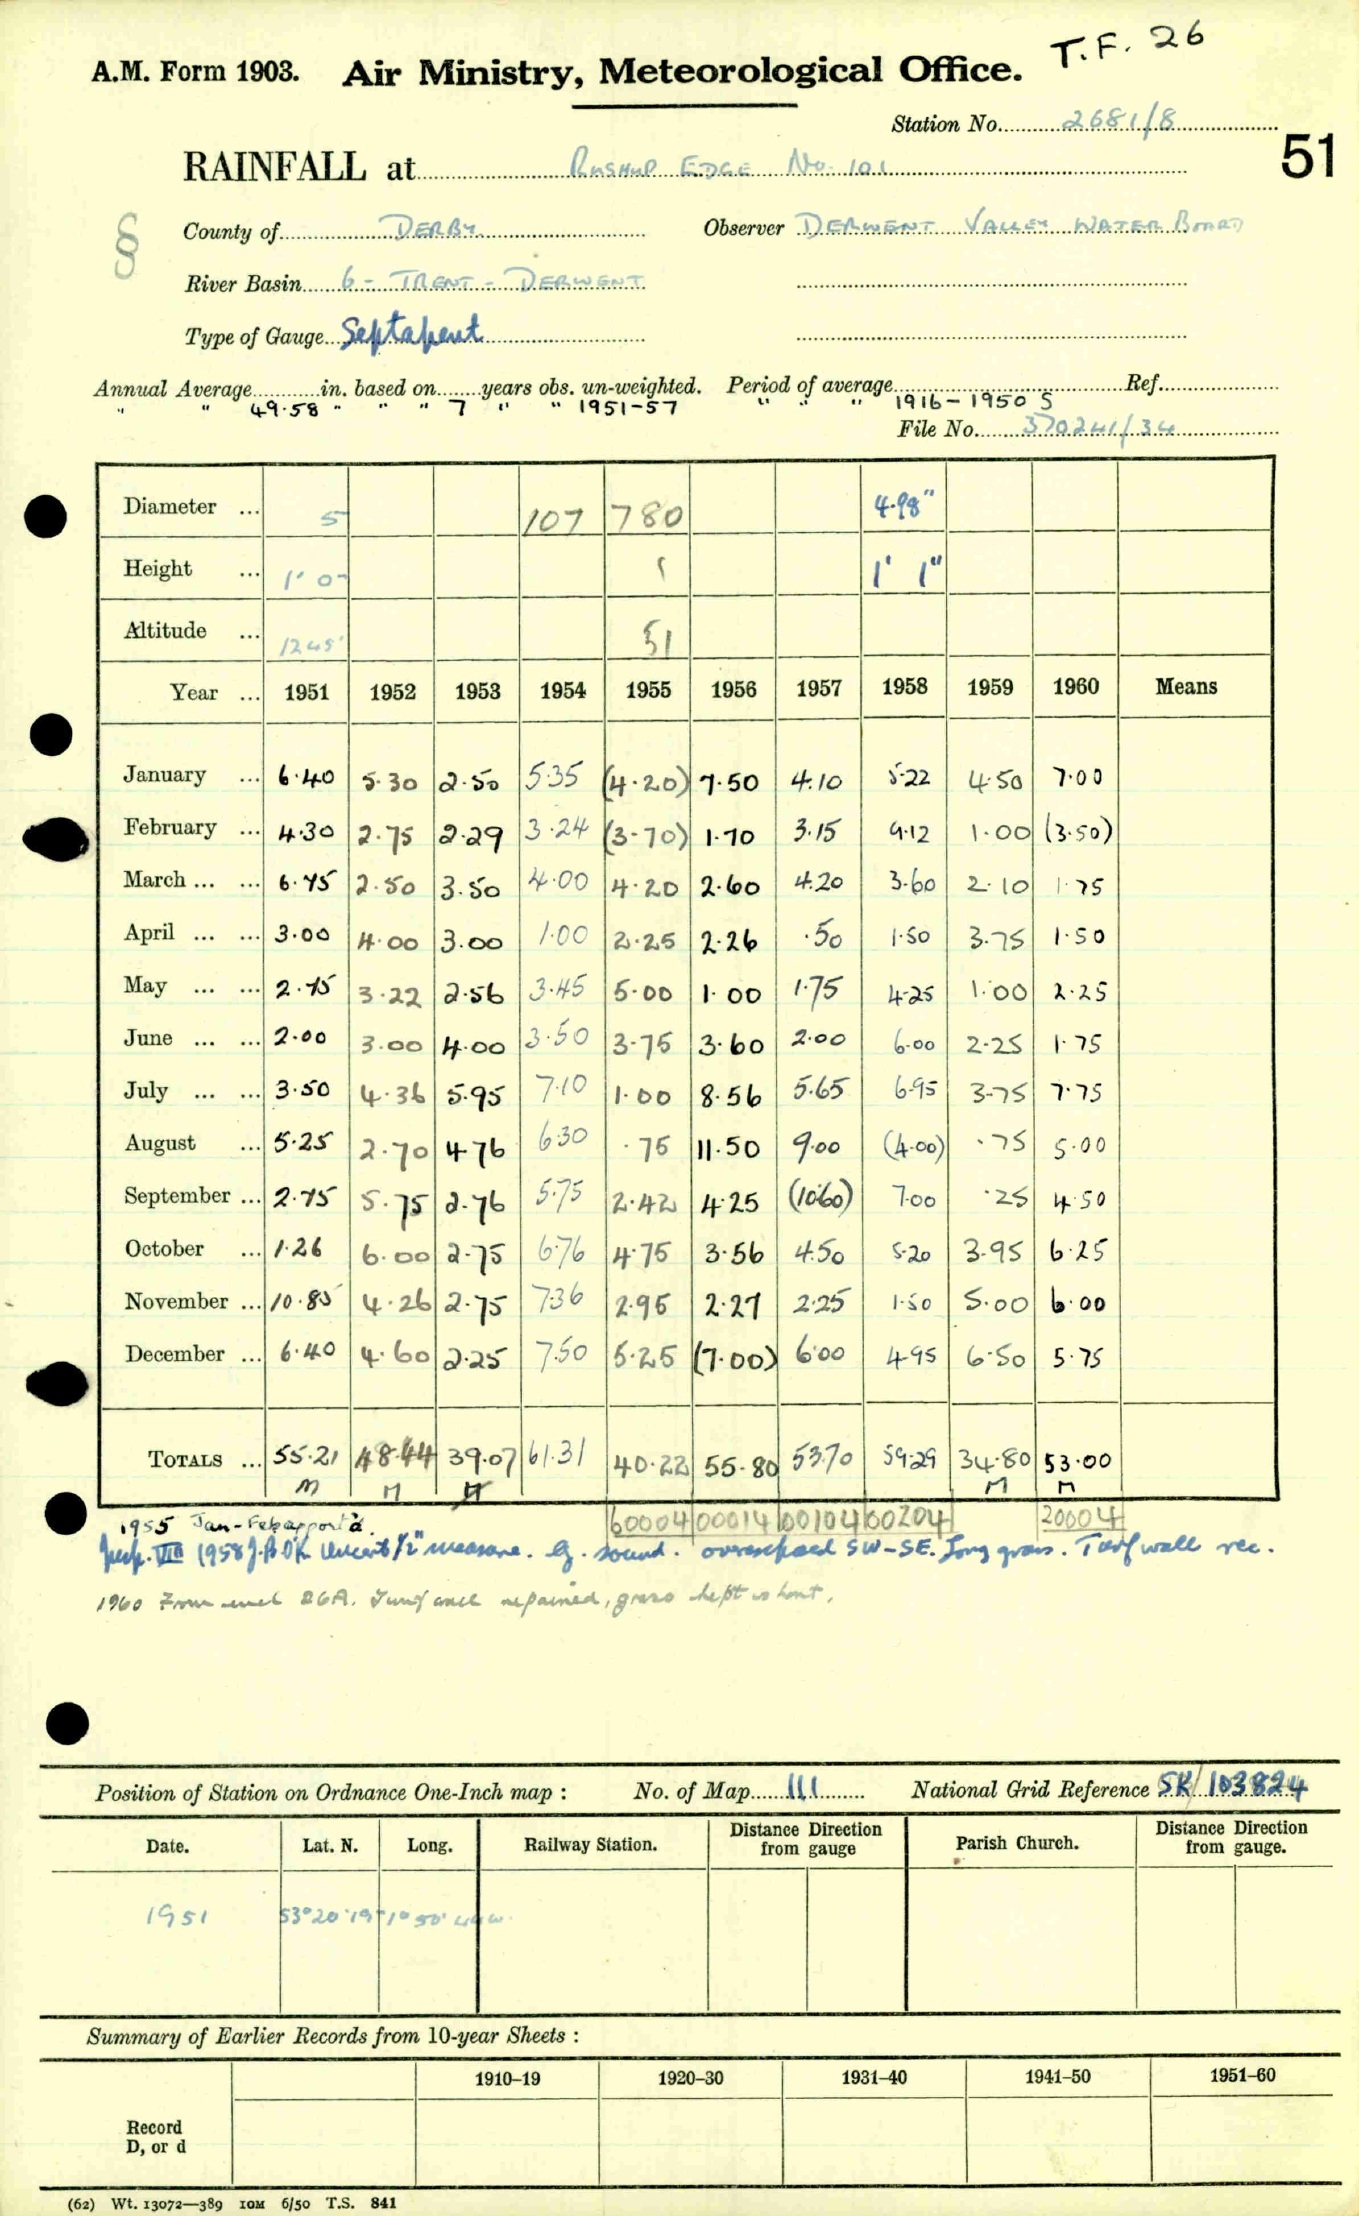 T.F. 26
A.M. Form 1903. Air Ministry, Meteorological Office.
Station No. 2681/8
51
RAINFALL at Rushup Edge No. 101
§ County of Derby Observer Derwent Valley Water Board
River Basin 6 - Trent - Derwent
Type of Gauge Septapent
Annual Average in. based on years obs. un-weighted. Period of average Ref.
" " 49.58 " " " 7 " " 1951-57 " " " 1916-1950 S
File No. 370241/34
Diameter ... 5 107 780 4.98"
Height ... 1' 0" 1' 1"
Altitude ... 1245' 51
Year ... 1951 1952 1953 1954 1955 1956 1957 1958 1959 1960 Means
January ... 6.40 5.30 2.50 5.35 (4.20) 7.50 4.10 5.22 4.50 7.00
February ... 4.30 2.75 2.29 3.24 (3.70) 1.70 3.15 9.12 1.00 (3.50)
March ... ... 6.75 2.50 3.50 4.00 4.20 2.60 4.20 3.60 2.10 1.75
April ... ... 3.00 4.00 3.00 1.00 2.25 2.26 .50 1.50 3.75 1.50
May ... ... 2.75 3.22 2.56 3.45 5.00 1.00 1.75 4.25 1.00 2.25
June ... ... 2.00 3.00 4.00 3.50 3.75 3.60 2.00 6.00 2.25 1.75
July ... ... 3.50 4.36 5.95 7.10 1.00 8.56 5.65 6.95 3.75 7.75
August ... 5.25 2.70 4.76 6.30 .75 11.50 9.00 (4.00) .75 5.00
September ... 2.75 5.75 2.76 5.75 2.42 4.25 (10.60) 7.00 .25 4.50
October ... 1.26 6.00 2.75 6.76 4.75 3.56 4.50 5.20 3.95 6.25
November ... 10.85 4.26 2.75 7.36 2.95 2.27 2.25 1.50 5.00 6.00
December ... 6.40 4.60 2.25 7.50 5.25 (7.00) 6.00 4.95 6.50 5.75
Totals ... 55.21 48.44 39.07 61.31 40.22 55.80 53.70 59.29 34.80 53.00
M M M M M
60004 00014 00104 00204 20004
1955 Jan-Feb apport'd.
Insp. VIII 1958 measure. G. sound. overexposed SW-SE. Long grass. Turf wall rec.
1960 From repaired, grass kept short.
Position of Station on Ordnance One-Inch map : No. of Map 111 National Grid Reference SK/103824
Date. Lat. N. Long. Railway Station. Distance Direction from gauge Parish Church. Distance Direction from gauge.
1951 53° 20' 19" 1° 50' 44 W.
Summary of Earlier Records from 10-year Sheets :
1910–19 1920–30 1931–40 1941–50 1951–60
Record
D, or d
(62) Wt. 13072—389 10M 6/50 T.S. 841